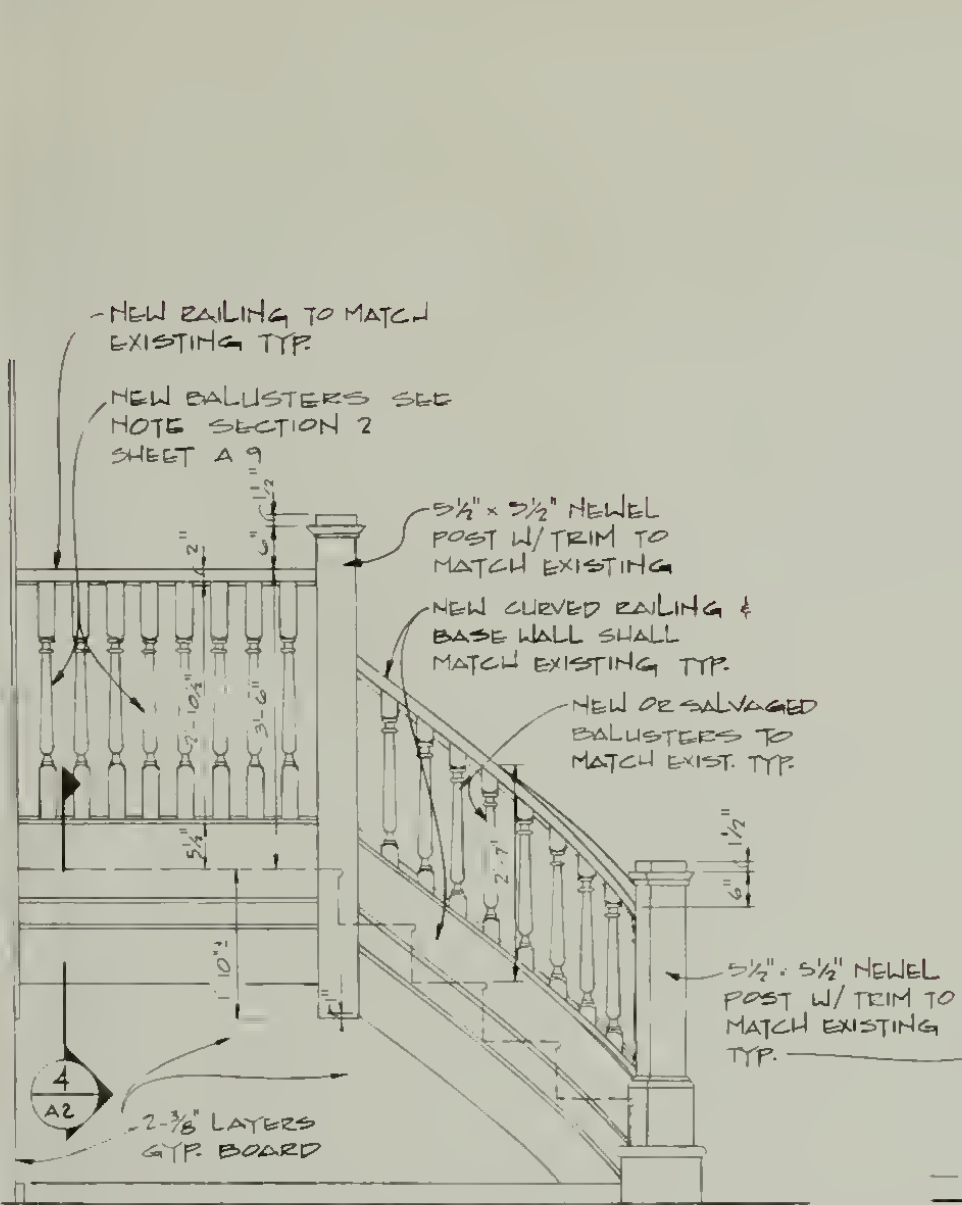 NEW RAILING TO MATCH
EXISTING TYP.
NEW BALUSTERS SEE
NOTE SECTION 2
SHEET A 9
1½"
6"
2"
5½" x 5½" NEWEL
POST W/ TRIM TO
MATCH EXISTING
NEW CURVED RAILING &
BASE WALL SHALL
MATCH EXISTING TYP.
2'-10½"
3'-6"
NEW OR SALVAGED
BALUSTERS TO
MATCH EXIST. TYP.
5½"
2'-7"
1½"
6"
5½" · 5½" NEWEL
POST W/ TRIM TO
MATCH EXISTING
TYP.
4
A2
2-⅜" LAYERS
GYP. BOARD